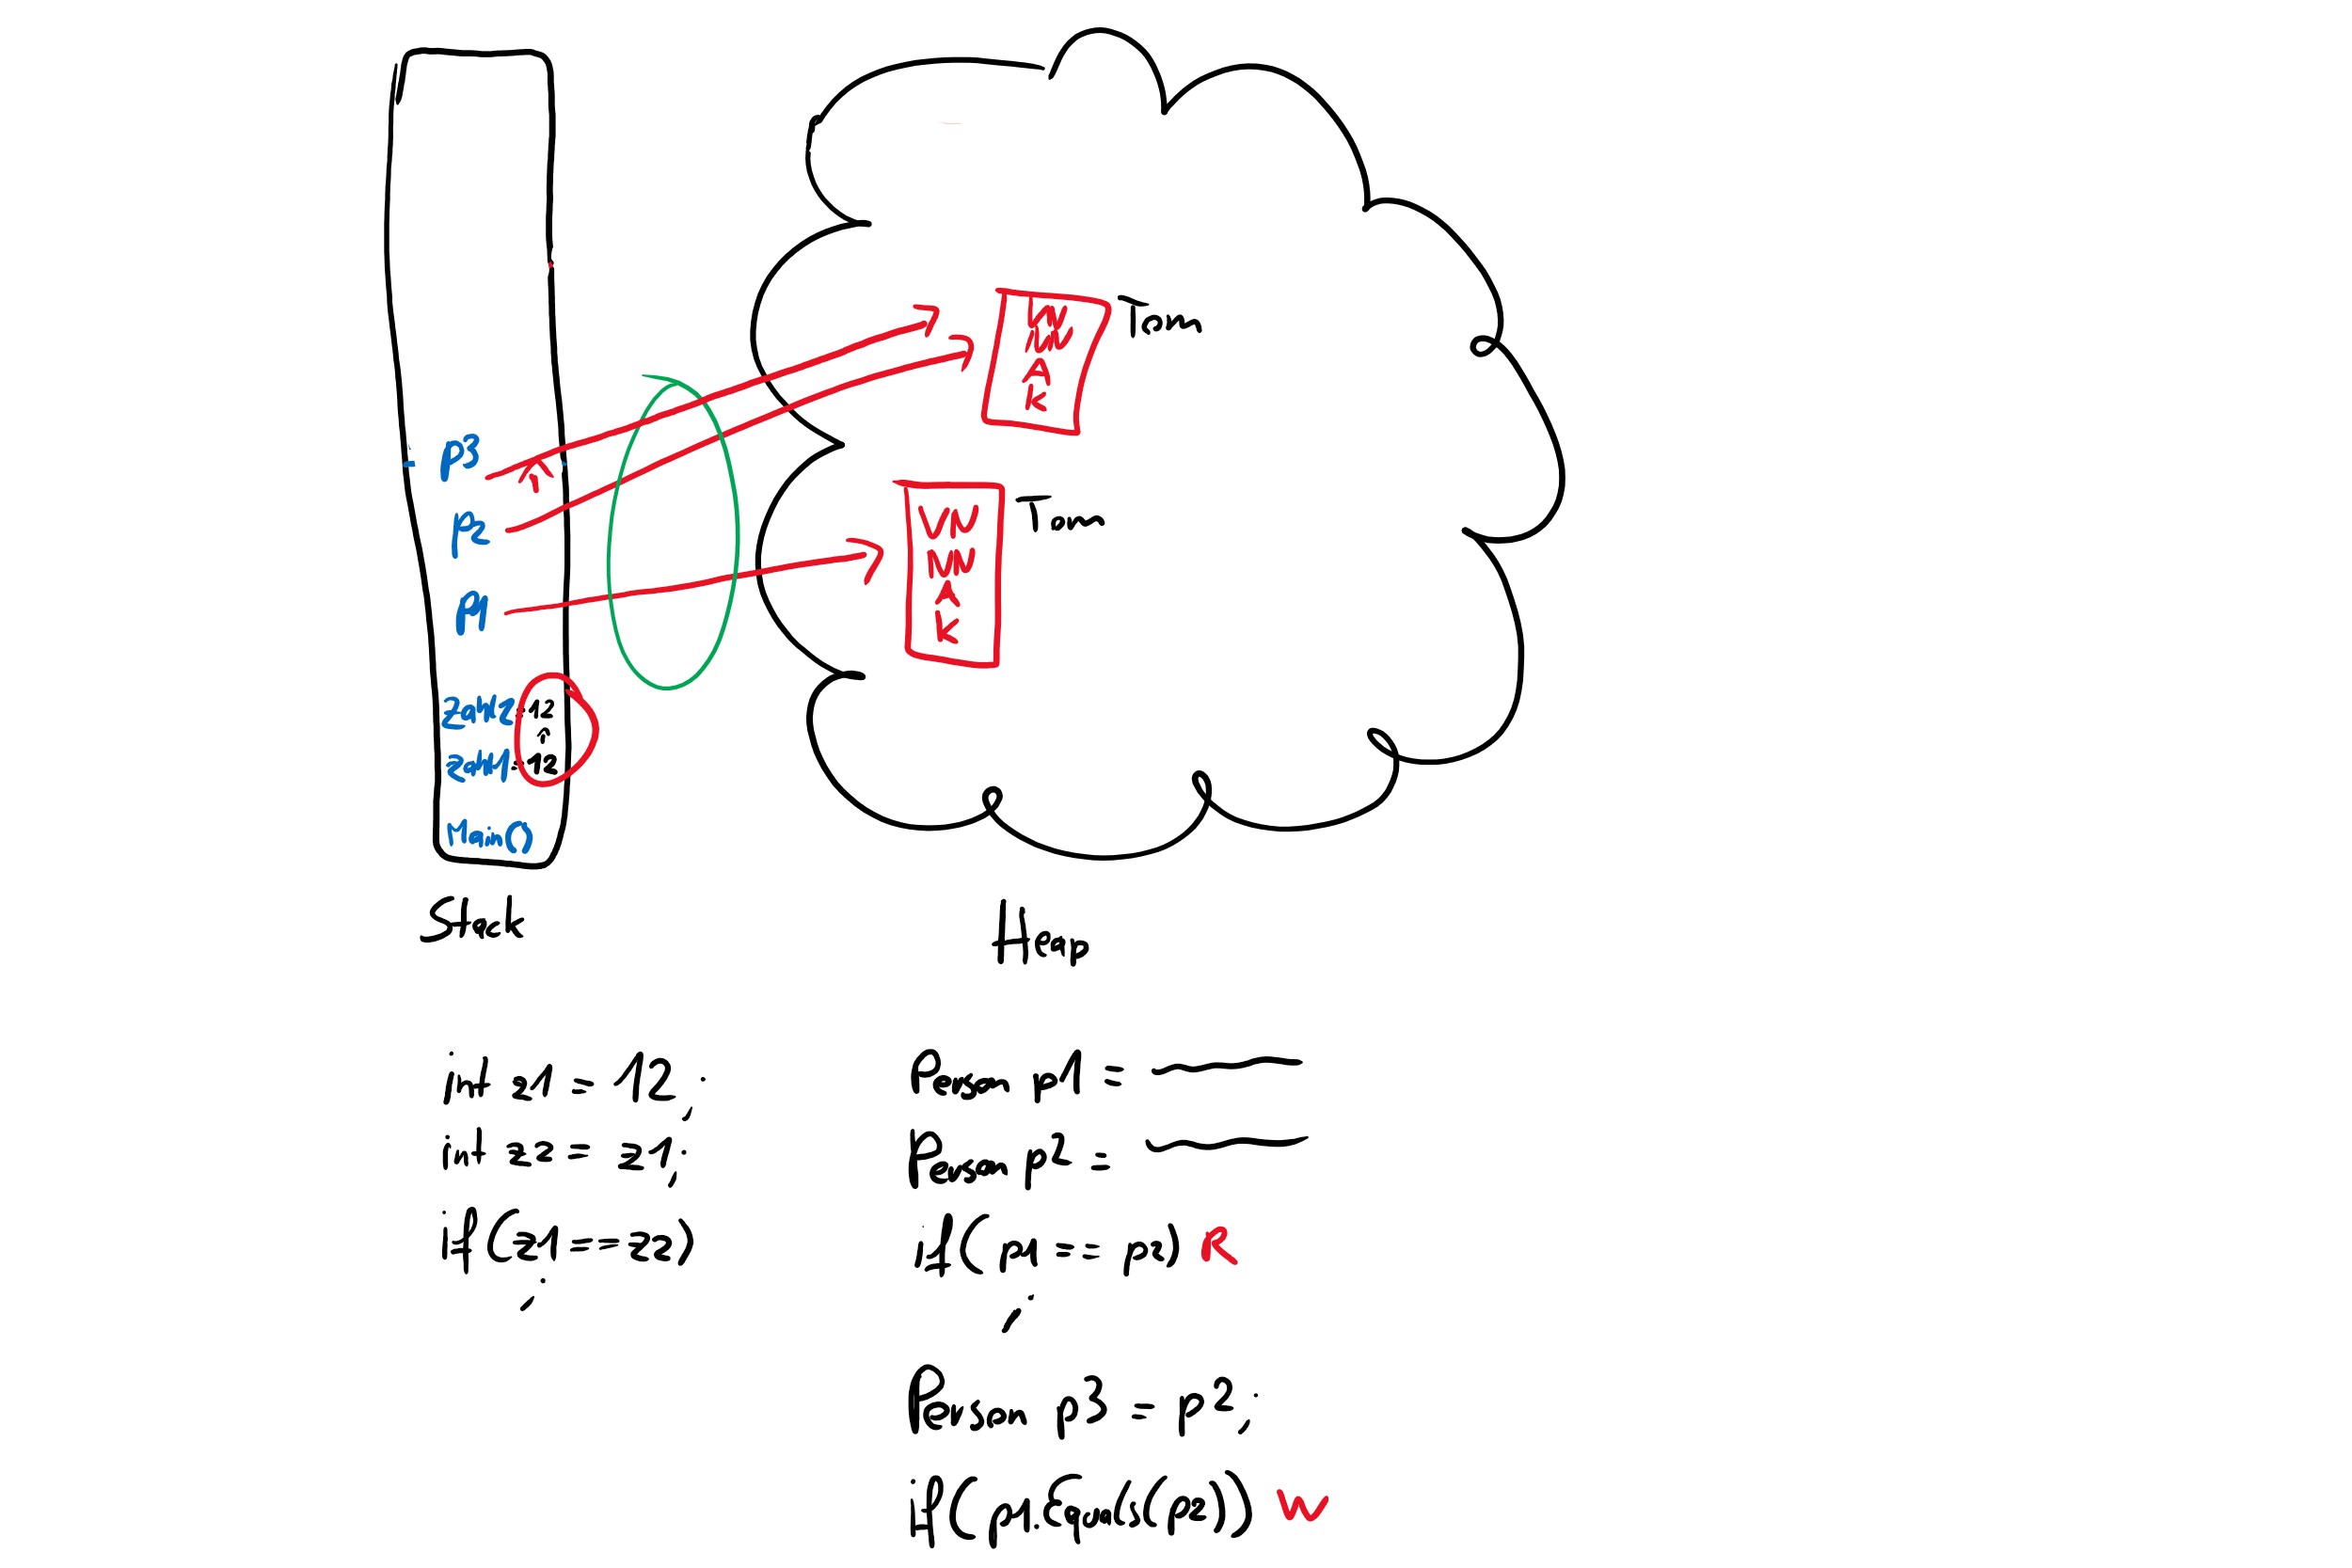 p3
p2
p1
zahl2 = 12
zahl1 = 12
Main()
Stack
VW
VW
A
k
Tom
VW
VW
A
K
Tom
Heap
int z1 = 12;
int z2 = z1;
if(z1 == z2)
;
Person p1 =
Person p2 =
if(p1 == p2) R
;
Person p3 = p2;
if(p1.Equals(p2)) W